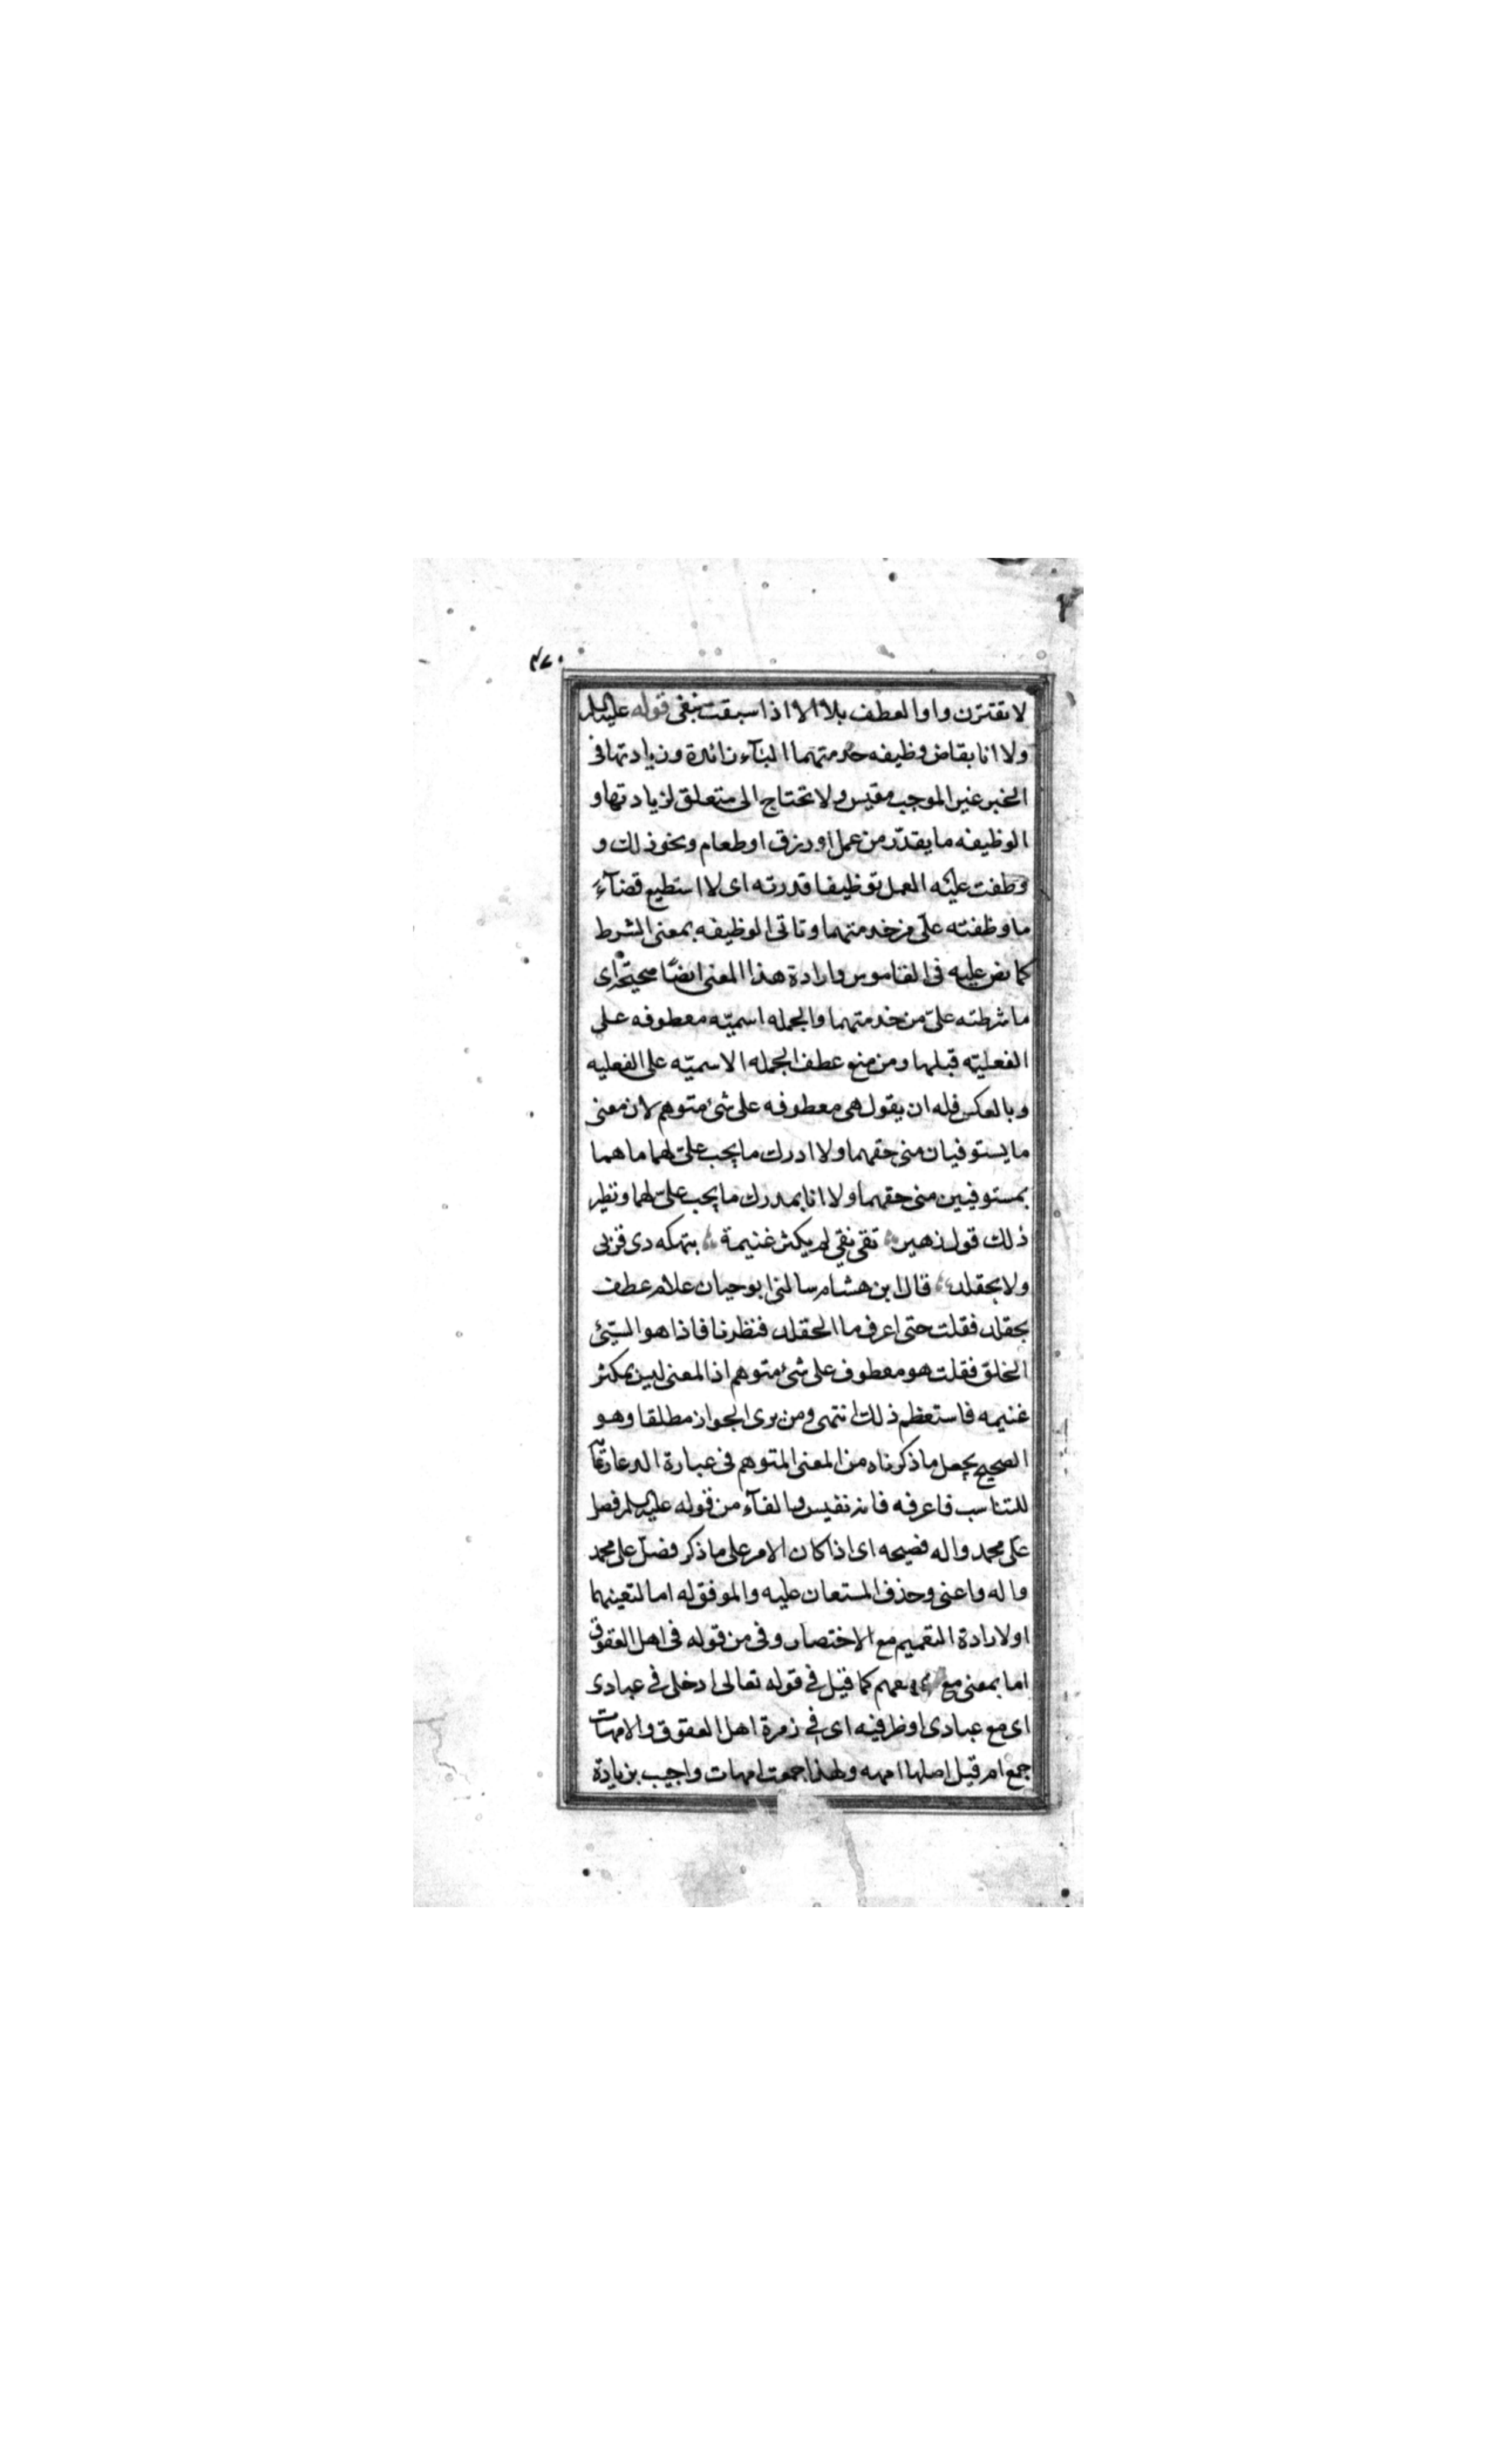 لا تقترن واو العطف بلا الا اذا سبقت بنفى قوله عليه السلم
ولا انا بقاض وظيفه خدمتهما البآء زائدة وزيادتها فى
الخبر غير الموجب مقيس ولا تحتاج الى متعلق لزيادتها و
الوظيفه ما يقدّر من عمل او رزق او طعام ونحو ذلك و
وظفت عليه العمل توظيفا قدرته اى لا استطيع قضآء
ما وظفته علىّ من خدمتهما وتاتى الوظيفه بمعنى الشرط
كما نص عليه فى القاموس وارادة هذا المعنى ايضًا صحيحة اى
ما شرطته علىّ من خدمتهما والجمله اسميّه معطوفه على
الفعليّه قبلها ومن منع عطف الجمله الاسميّه على الفعليه
وبالعكس فله ان يقول هى معطوفه على شئ متوهم لان معنى
ما يستوفيان منى حقهما ولا ادرك ما يجب علىّ لهما ما هما
بمستوفيين منى حقهما ولا انا بمدرك ما يجب علىّ لهما ونظير
ذلك قول زهير تقى نقى لم يكثر غنيمة بنهكه ذى قربى
ولا بحقلد قال ابن هشام سالنى ابو حيان علام عطف
بحقلد فقلت حتى اعرف ما الحقلد فنظرنا فاذا هو السيّئ
الخلق فقلت هو معطوف على شئ متوهم اذ المعنى ليس بمكثر
غنيمه فاستعظم ذلك انتهى ومن يرى الجواز مطلقا وهو
الصحيح يجعل ما ذكرناه من المعنى المتوهم فى عبارة الدعا
للتناسب فاعرفه فانه نفيس والفآء من قوله عليه السلم فصل
على محمد واله فصيحه اى اذا كان الامر على ما ذكر فصلّ على محمد
واله واعنى وحذف المستعان عليه والموفق له اما لتعينهما
او لارادة التعميم مع الاختصار وفى من قوله فى اهل العقوق
اما بمعنى مع اى معهم كما قيل فى قوله تعالى ادخلى فى عبادى
اى مع عبادى او ظرفيه اى فى زمرة اهل العقوق والامهات
جمع ام قيل اصلها امهه ولهذا جمعت امهات واجيب بزيادة